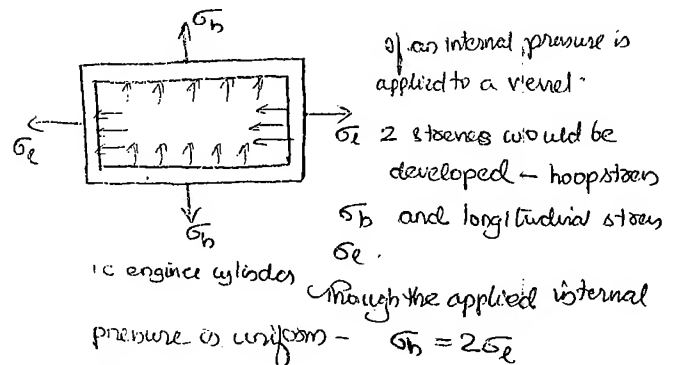 σh
If an internal pressure is
applied to a vessel.
σl
σl 2 stresses would be
developed – hoop stress
σh
σh and longitudinal stress
σl.
IC engine cylinder Though the applied internal
pressure is uniform – σh = 2σl